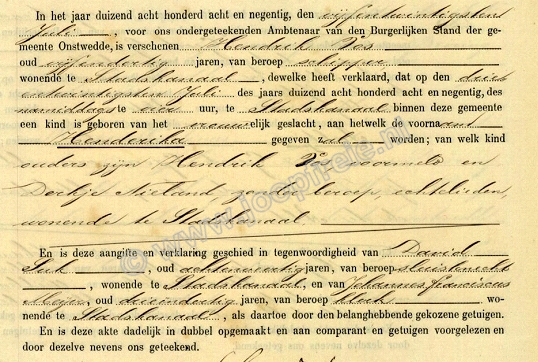 In het jaar duizend acht honderd acht en negentig, den vijfentwintigsten
Juli, voor ons ondergeteekenden Ambtenaar van den Burgerlijken Stand der ge-
meente Onstwedde, is verschenen Hendrik Vos
oud vijfendertig jaren, van beroep schipper
wonende te Stadskanaal, dewelke heeft verklaard, dat op den drieë
entwintigsten Juli des jaars duizend acht honderd acht en negentig, des
namiddags te een uur, te Stadskanaal binnen deze gemeente
een kind is geboren van het vrouwelijk geslacht, aan hetwelk de voornaam
Henderika gegeven zal worden; van welk kind
ouders zijn Hendrik Vos voormeld en
Doekje Nieland, zonder beroep, echtelieden,
wonende te Stadskanaal.
En is deze aangifte en verklaring geschied in tegenwoordigheid van David
, oud achtenveertig jaren, van beroep sluisknecht
, wonende te Stadskanaal, en van Johannes Franciscus
Meijer, oud drieëndertig jaren, van beroep klerk wo-
nende te Stadskanaal, als daartoe door den belanghebbende gekozene getuigen.
En is deze akte dadelijk in dubbel opgemaakt en aan comparant en getuigen voorgelezen en
door dezelve nevens ons geteekend.
© www.joopirele.nl